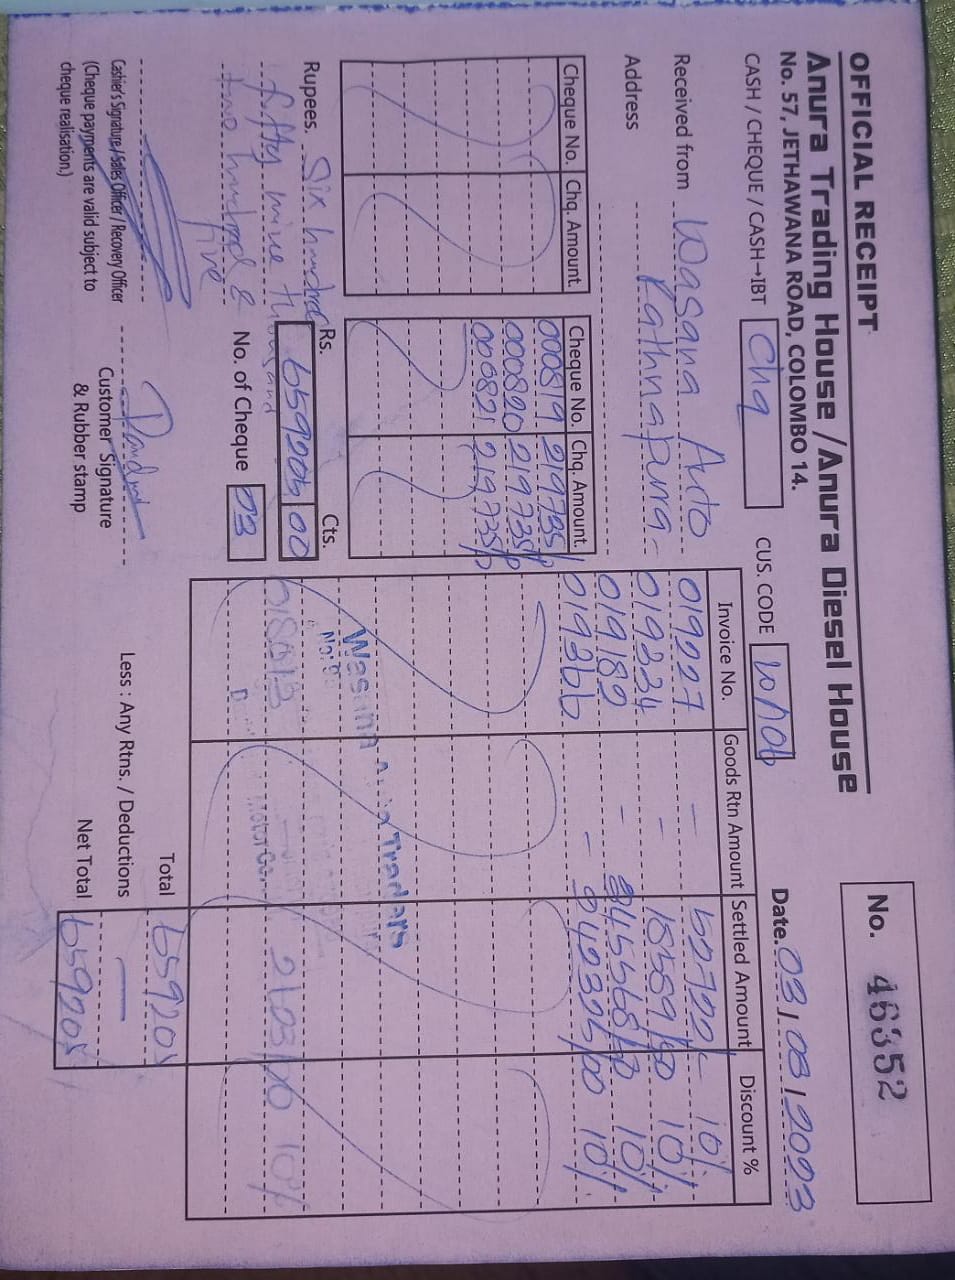 OFFICIAL RECEIPT
No. 46352
Anura Trading House / Anura Diesel House
No. 57, JETHAWANA ROAD, COLOMBO 14.
Date. 03/08/2023
CASH / CHEQUE / CASH→IBT Chq
CUS. CODE
Received from Wasana Auto
Address Rathnapura
Cheque No. Chq. Amount. Cheque No. Chq. Amount.
000819 219735/-
000820 219735/-
000821 219735/-
Invoice No. Goods Rtn Amount Settled Amount Discount %
019227 - 10%
019334 - 10%
019189 - 10%
019366 - 10%
10%
Wasana Auto Traders
Motor Co.
Rupees. Six hundred
fifty nine thousand
two hundred &
five
Rs. 659205 Cts. 00
No. of Cheque 03
Total 659205
Less : Any Rtns. / Deductions —
Net Total 659205
Cashier's Signature / Sales Officer / Recovery Officer
(Cheque payments are valid subject to
cheque realisation.)
Customer Signature
& Rubber stamp